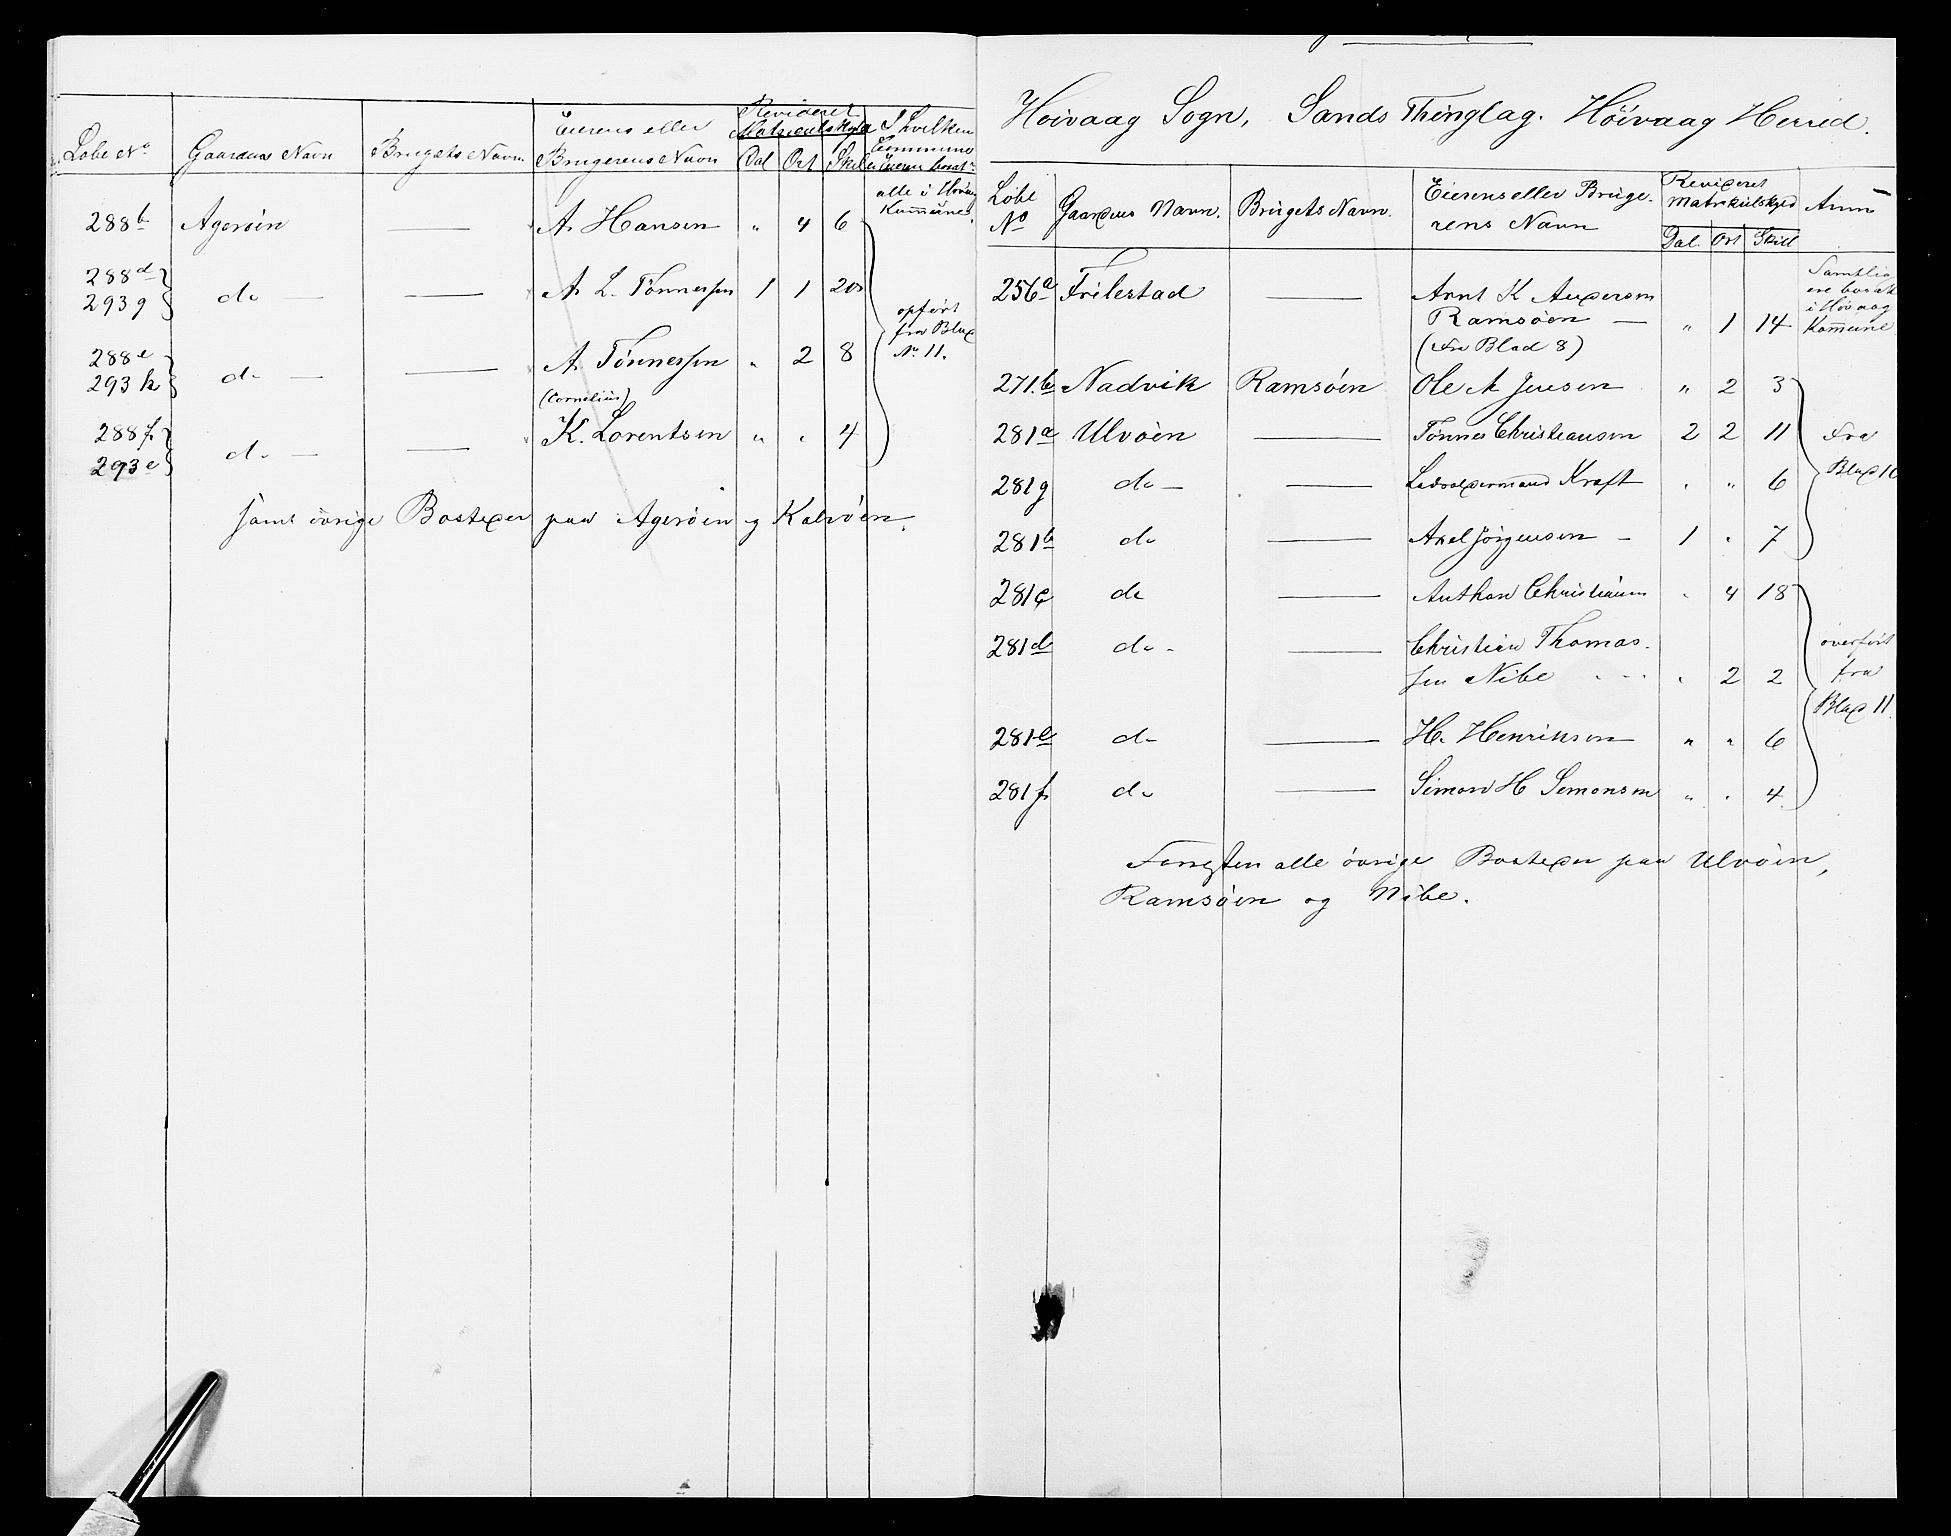 Löbe No Gaardens Navn Brugets Navn Eierens eller Brugerens Navn Revideret Matrikulskyld Dal Ort Skil I hvilken Commune Eieren bosat
alle i Höivaag Kommune
288b Agerøen — A. Hansen " 4 6
288d 293g do — — A. L. Tönnessen 1 1 20
opført fra Blad No 11.
288e 293h do — — A. Tönnessen " 2 8
(Cornelius)
288f 293e do — — K. Lorentsen " " 4
samt övrige Bosteder paa Agerøen og Kalvøen.
Höivaag Sogn, Sands Thinglag. Höivaag Herred.
Löbe No Gaardens Navn. Brugets Navn. Eierens eller Brugerens Navn Revideret Matrikulskyld Dal. Ort Skill Anm
256a Frilestad — Arnt K Andersen
Ramsøen — " 1 14
(fra Blad 8)
Samtlige ere bosat i Höivaag Kommune
271.b Nadvik Ramsøen Ole A Jensen " 2 3
281a Ulvøen — Tönnes Christiansen 2 2 11
Fra Blad 10
281g do — — Kraft . " 6
281b do — Axel Jörgensen — 1 . 7
281c do — Anthon Christiansen . 4 18
281d do - — Christian Thomas-
sen Nibe . 2 2
overført fra Blad 11.
281e do — H. Henriksen " " 6
281f do — Simon H Simonsen " . 4
alle övrige Bosteder paa Ulvøen,
Ramsøen og Nibe.